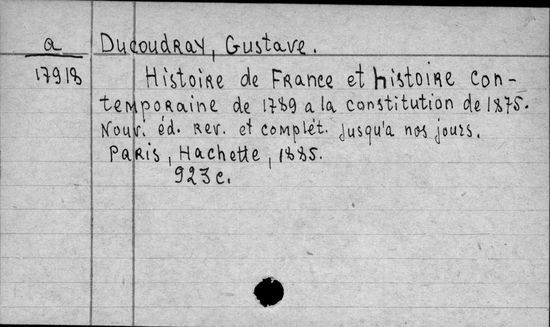 a Ducoudray, Gustave.
17918 Histoire de France et histoire con-
temporaine de 1789 a la constitution de 1875.
Nouv. éd. rev. et complét. jusqu'a nos jours.
Paris, Hachette, 1885.
923 c.